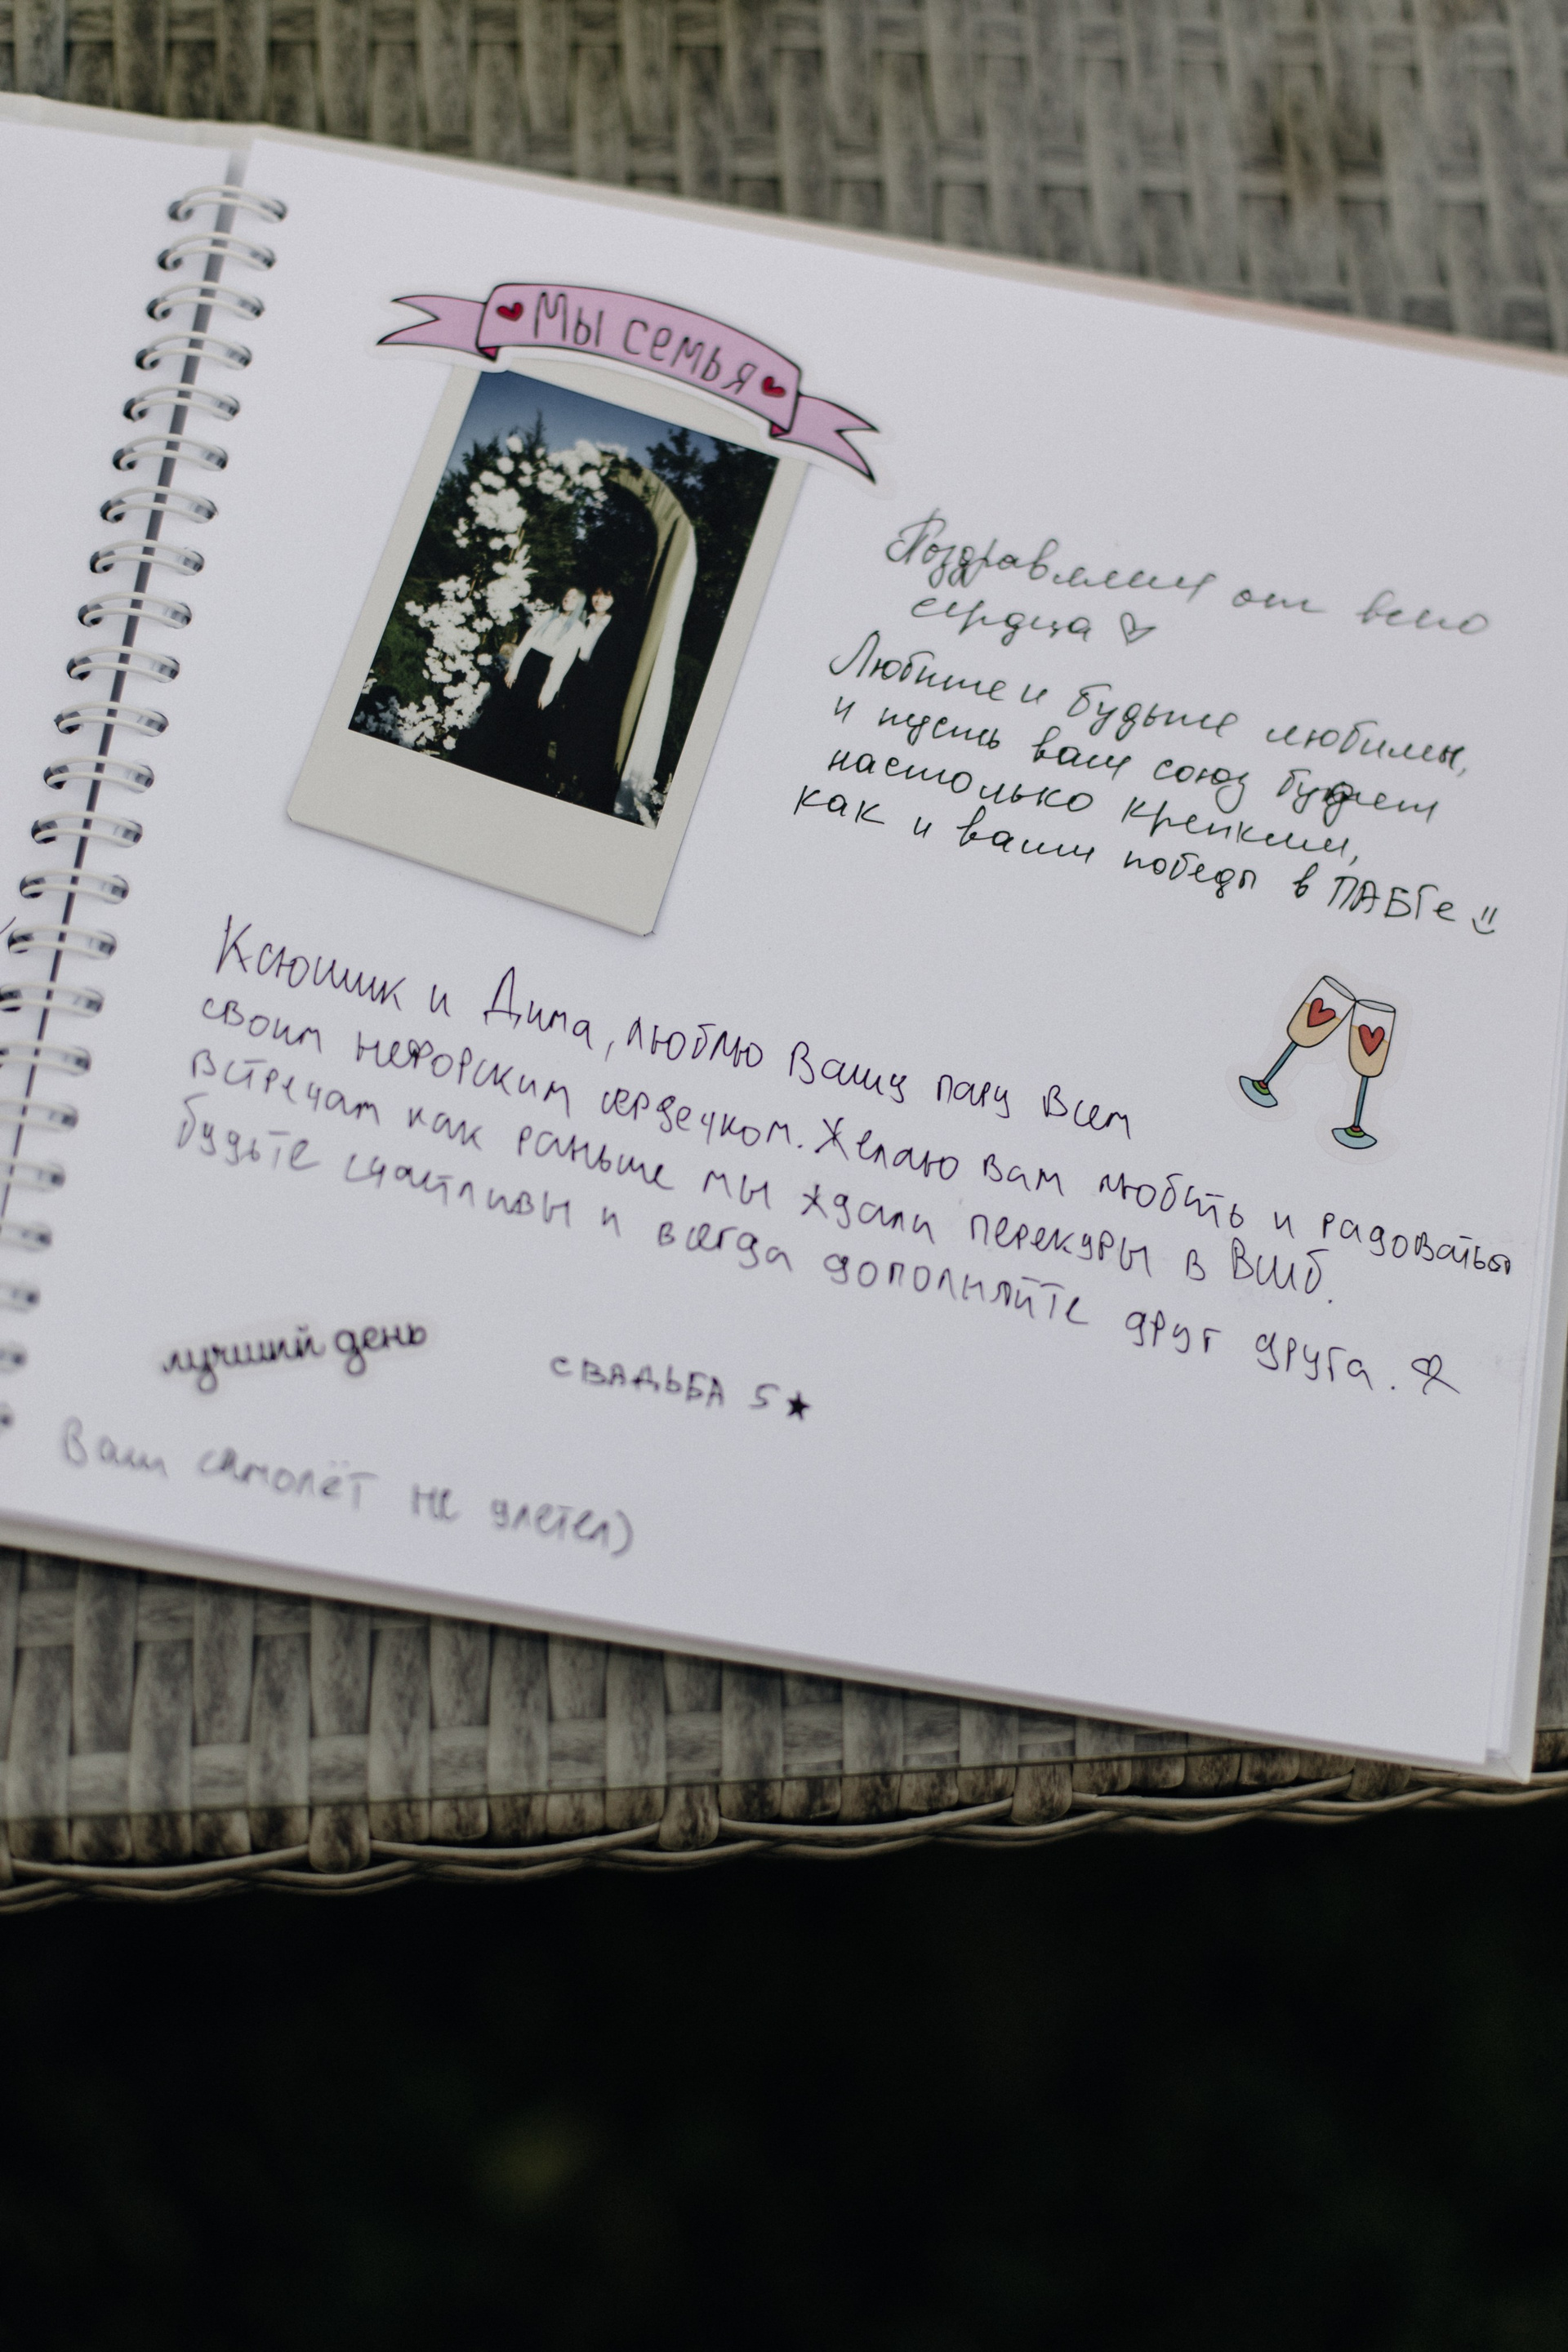 Мы семья
Поздравляем от всего
сердца
Любите и будьте любимы,
и пусть ваш союз будет
настолько крепким,
как и ваши победы в ПАБГе
Ксюшик и Дима, люблю Вашу пару всем
своим неформским сердечком. Желаю вам любить и радоваться
встречам как раньше мы ждали перекуры в ВШБ.
будьте счастливы и всегда дополняйте друг друга.
лучший день
СВАДЬБА 5★
Ваш самолёт не улетел)